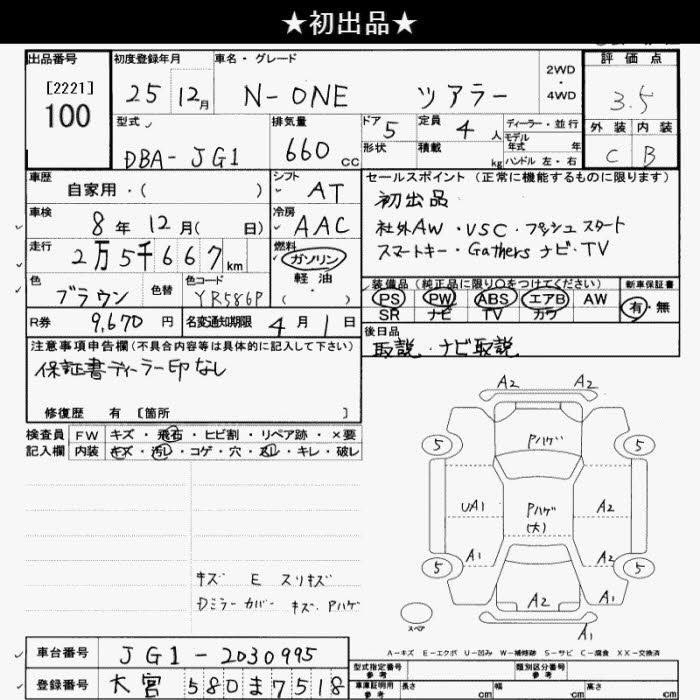 ★初出品★
出品番号 [2221] 100
初度登録年月 25 12月
車名・グレード N-ONE ツアラー
2WD・4WD
評価点 3.5
外装 内装
C B
型式 DBA-JG1
排気量 660 cc
ドア 5
形状
定員 4 人
積載 kg
ディーラー・並行
モデル年式 年
ハンドル 左・右
車歴 自家用・( )
シフト AT
車検 8年 12月( 日)
冷房 AAC
走行 2万5千667 km
燃料 ガソリン 軽油 ( ・ )
色 ブラウン 色替
色コード YR586P
R券 9,670 円
名変通知期限 4月1日
セールスポイント (正常に機能するものに限ります)
初出品
社外AW・VSC・プッシュスタート
スマートキー・Gathersナビ・TV
装備品 (純正品に限り○をつけてください) 新車保証書
PS PW ABS エアB AW 有・無
SR ナビ TV カワ
後日品
取説・ナビ取説
注意事項申告欄(不具合内容等は具体的に記入して下さい)
保証書ディーラー印なし
修復歴 有 [箇所 ]
検査員 FW キズ・飛石・ヒビ割・リペア跡・×要
記入欄 内装 キズ・汚レ・コゲ・穴・・キレ・破レ
キズ E スリキズ
Dミラーカバー キズ・Pハゲ
A2 A2
5 Pハゲ 5
UA1 Pハゲ(大) A2
A1 A2
5 A2 5
A1
スペア A1
A-キズ E-エクボ U-凹み W-補修跡 S-サビ C-腐食 XX-交換済
車台番号 JG1-2030995
登録番号 大宮 580ま7518
型式指定番号 参考 類別区分番号 参考
車庫証明用 参考 長さ cm 幅 cm 高さ cm